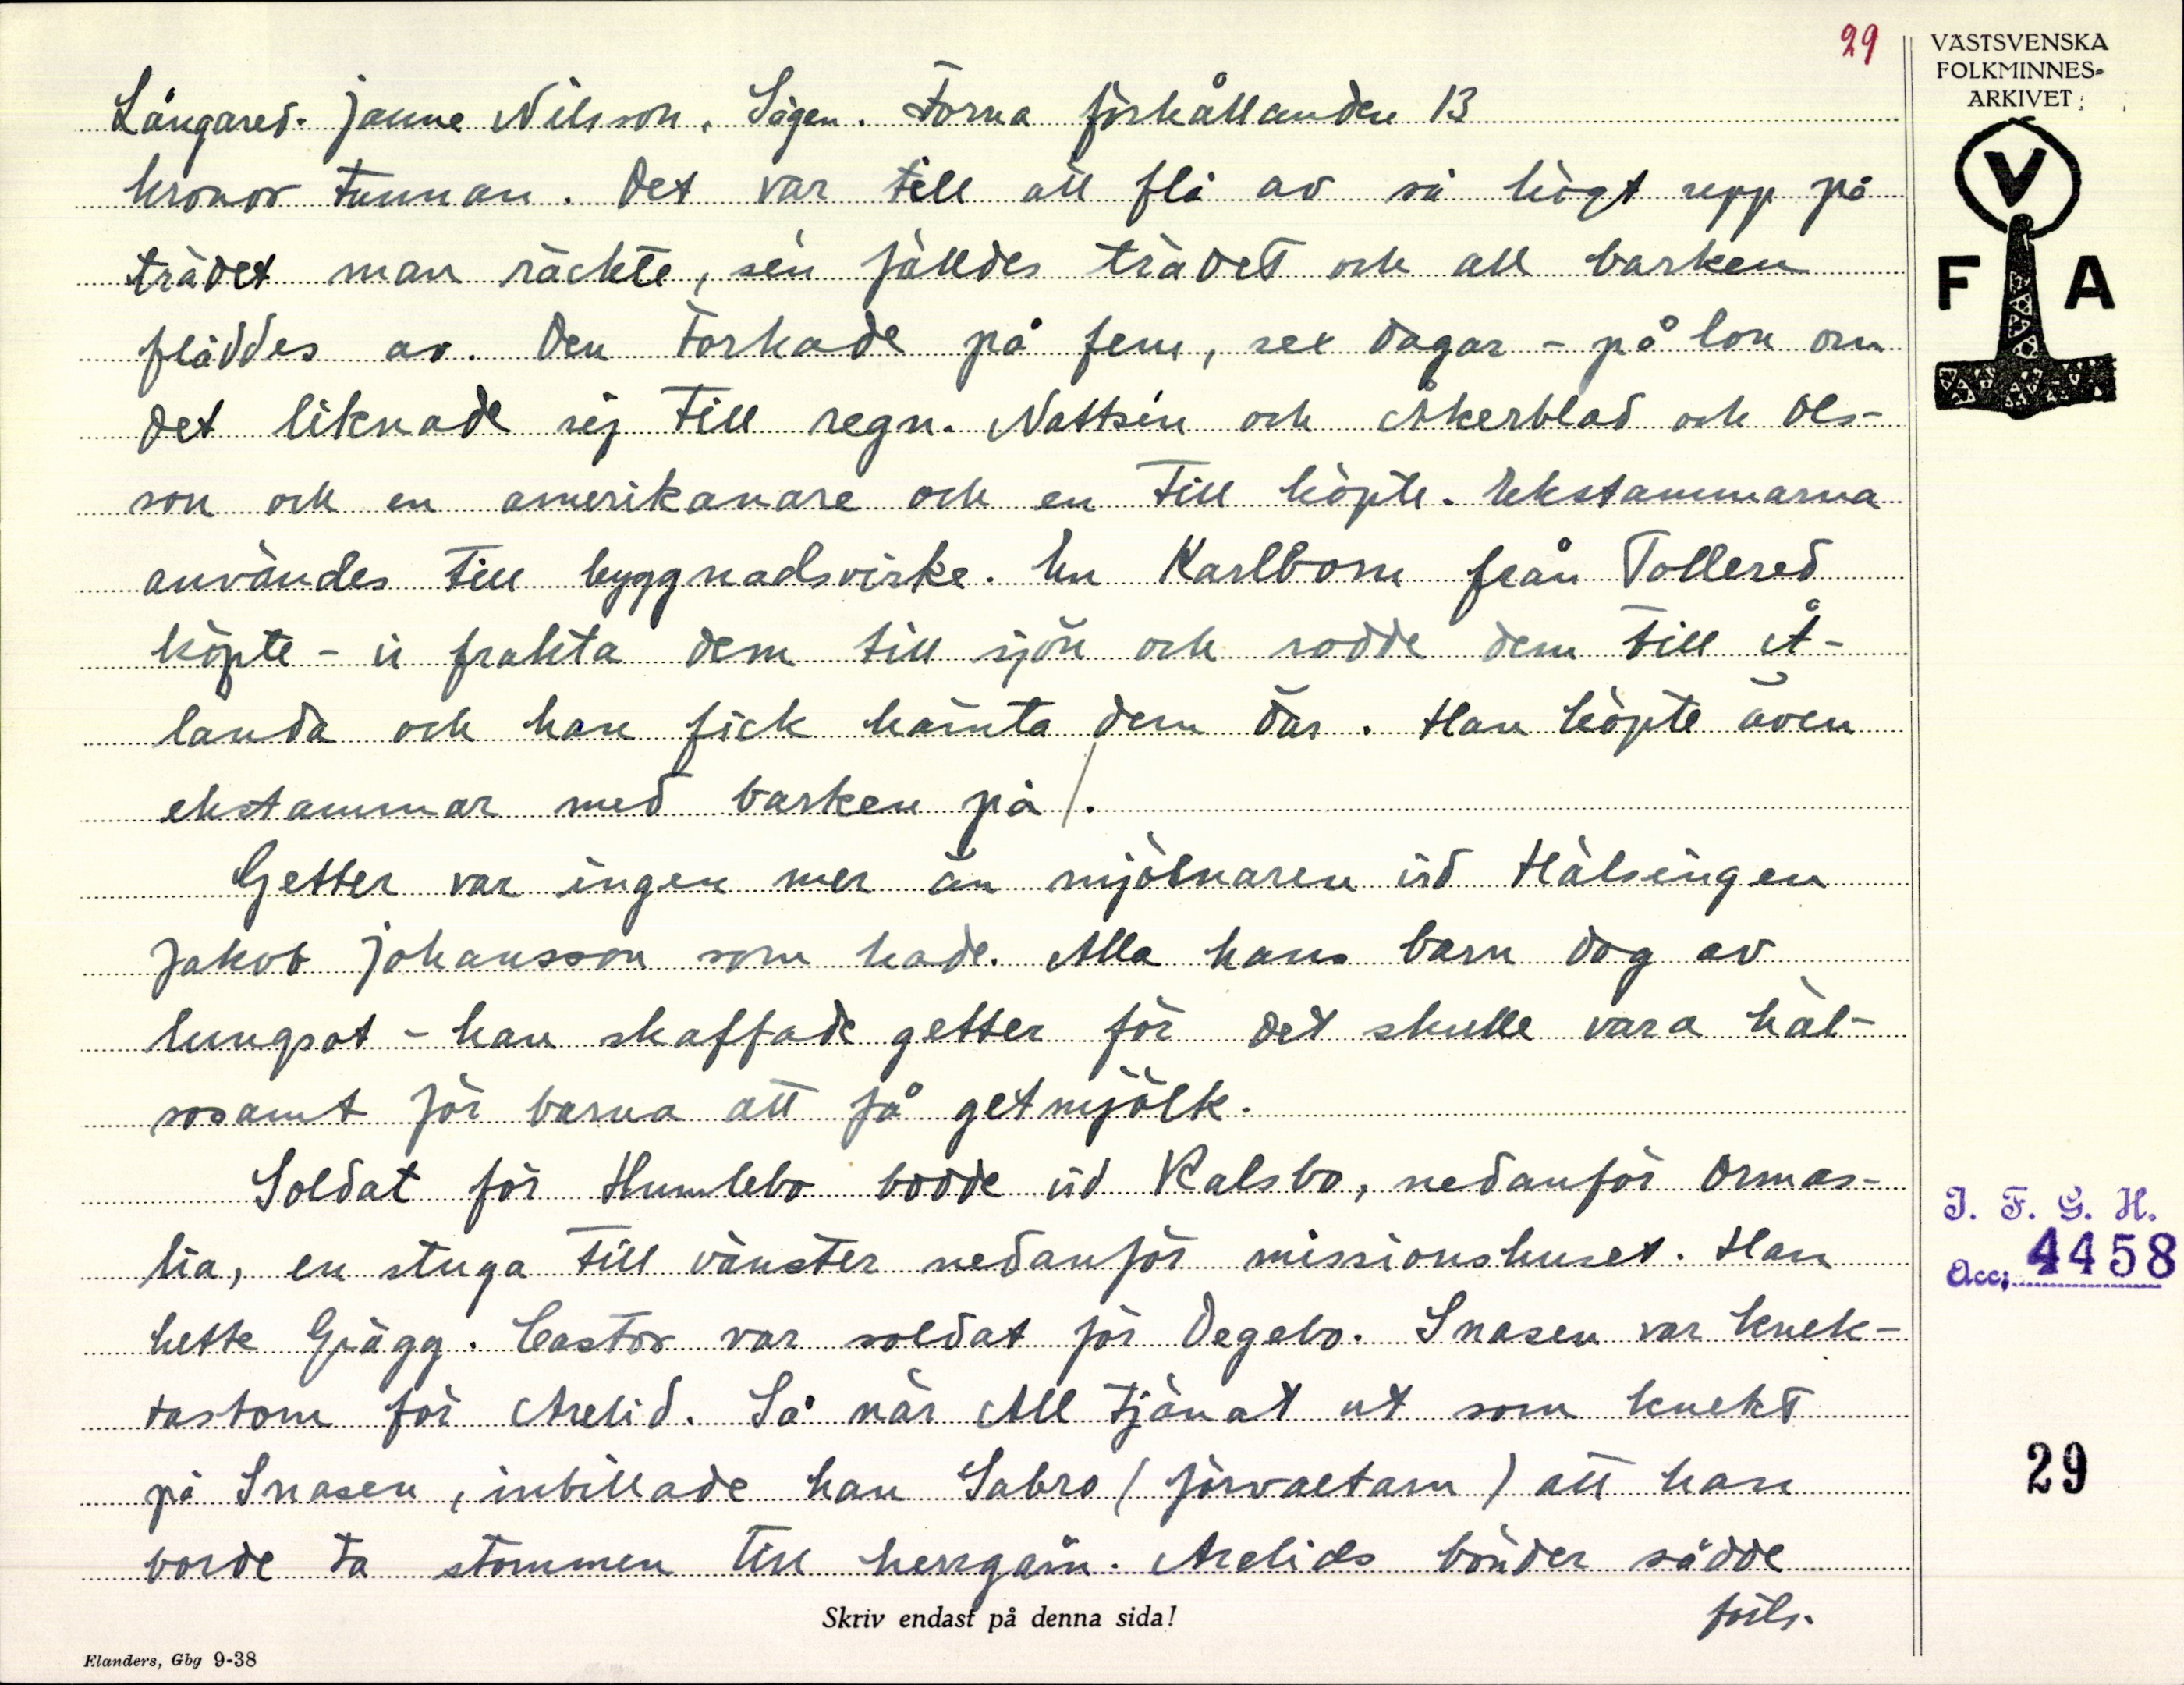 29
VÄSTSVENSKA
FOLKMINNES-
ARKIVET
V
F A
Långared. Janne Nilsson. Sägen. Forna förhållanden 13
kronor tunnan. Det var till att flå av så högt upp på
trädet man räckte, sen fälldes trädet och all barken
fläddes av. Den torkade på fem, sex dagar - på lon om
det liknade sej till regn. Nattsén och Åkerblad och Ols-
son och en amerikanare och en till köpte. Ekstammarna
användes till byggnadsvirke. En Karlbom från Tollered
köpte - vi frakta dem till sjön och rodde dem till Å-
landa och han fick hämta dem där. Han köpte även
ekstammar med barken på.
Getter var ingen mer än mjölnaren vid Hälsingen
Jakob Johansson som hade. Alla hans barn dog av
lungsot - han skaffade getter för det skulle vara häl-
sosamt för barna att få getmjölk.
Soldat för Humlebo bodde vid Kalsbo, nedanför Ormas-
lia, en stuga till vänster nedanför missionshuset. Han
hette Grägg. Castor var soldat för Degebo. Snasen var knek-
tastom för Arelid. Så när All tjänat ut som knekt
på Snasen, inbillade han Sabro (förvaltarn) att han
borde ta stommen till herrgåin. Arelids bönder sådde
forts.
Skriv endast på denna sida!
Elanders, Gbg 9-38
I. F. G. H.
Acc: 4458
29